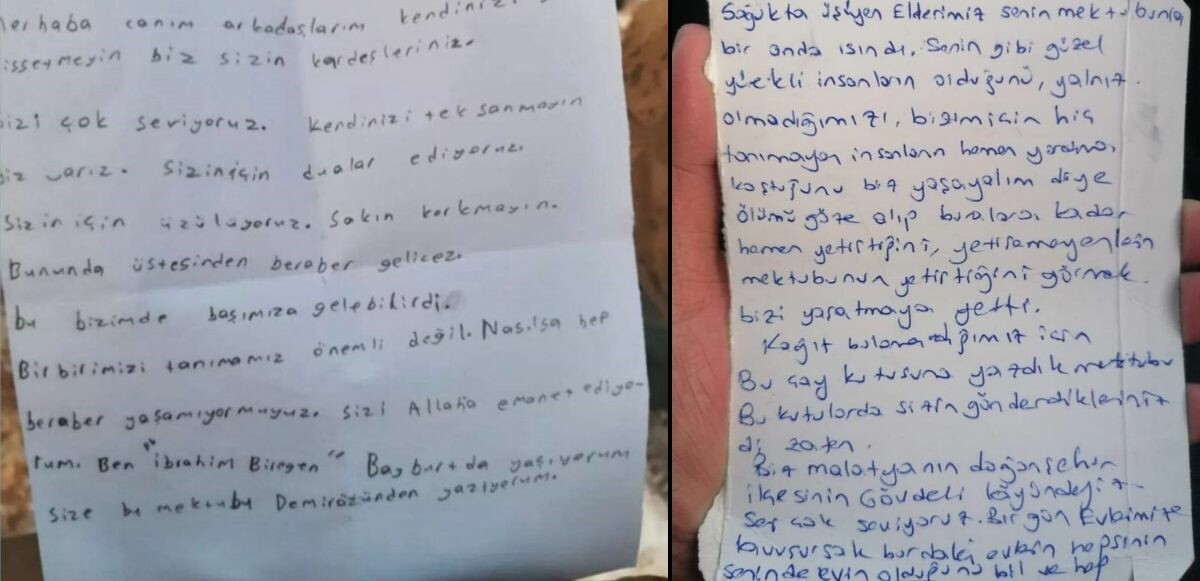 Merhaba canım arkadaşlarım kendinizi
hissetmeyin biz sizin kardeşleriniz.
sizi çok seviyoruz. Kendinizi tek sanmayın
biz varız. sizin için dualar ediyoruz.
sizin için üzülüyoruz. Sakın korkmayın.
Bununda üstesinden beraber gelicez.
bu bizimde başımıza gelebilirdi.
Birbirimizi tanımamız önemli değil. Nasılsa hep
beraber yaşamıyormuyuz. sizi Allaha emanet ediyo-
rum. Ben "İbrahim Biregen" Bayburtda yaşıyorum
size bu mektubu Demirözünden yazıyorum.
Soğukta üşüyen Ellerimiz senin mektubunla
bir anda ısındı. Senin gibi güzel
yürekli insanların olduğunu, yalnız
olmadığımızı, bizim için hiç
tanımayan insanların hemen yardıma
koştuğunu biz yaşayalım diye
ölümü göze alıp buralara kadar
hemen yetiştiğini, yetişemeyenlerin
mektubunun yetiştiğini görmek
bizi yaşatmaya yetti.
Kağıt bulamadığımız için
Bu çay kutusuna yazdık mektubu
Bu kutularda sizin gönderdikleriniz
di zaten.
Biz malatyanın doğanşehir
ilçesinin Gövdeli köyündeyiz
Seni çok seviyoruz. Bir gün Evlerimize
kavuşursak burdaki evlerin hepsinin
seninde evin olduğunu bil ve hep